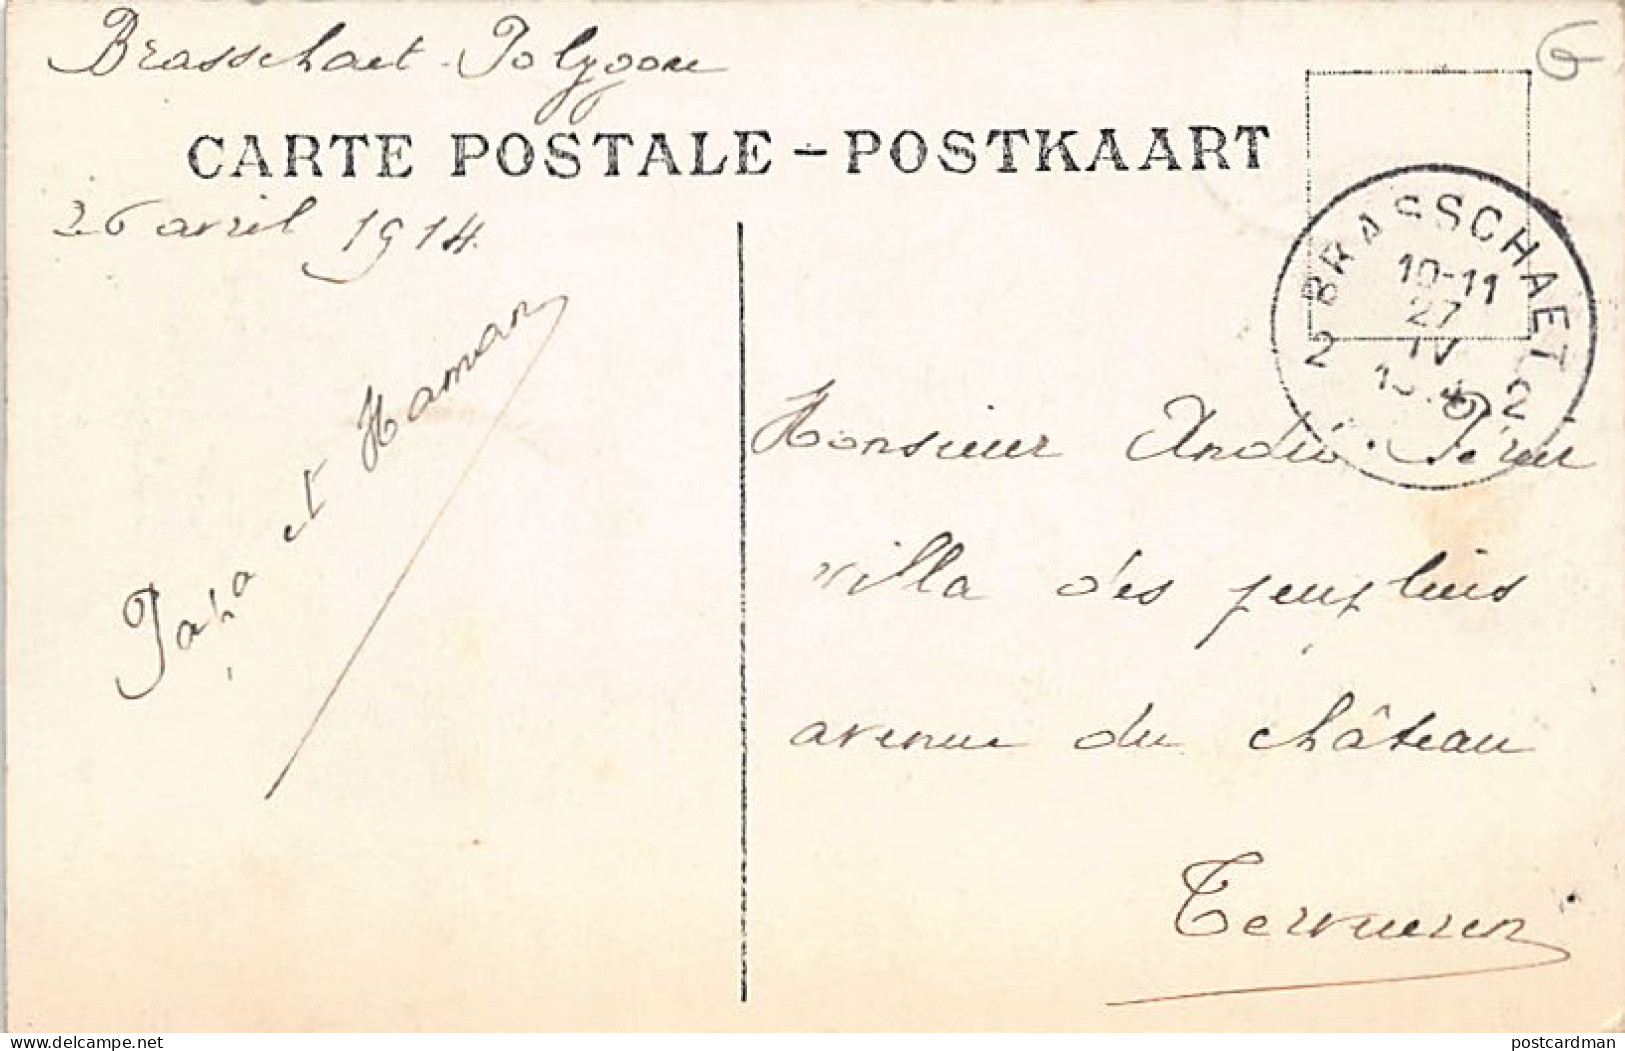 Brasschaet-Polygone
CARTE POSTALE - POSTKAART
26 avril 1914.
BRASSCHAET
2 2
10-11
27
IV
Papa et Maman
Monsieur André
villa des peupliers
avenue du château
Tervueren
delcampe.net
postcardman